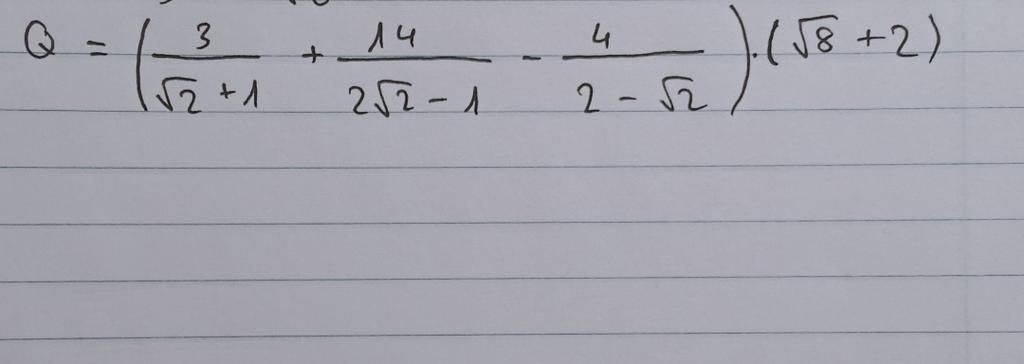 Q = ( 3/(√2 + 1) + 14/(2√2 - 1) - 4/(2 - √2) ) . (√8 + 2)